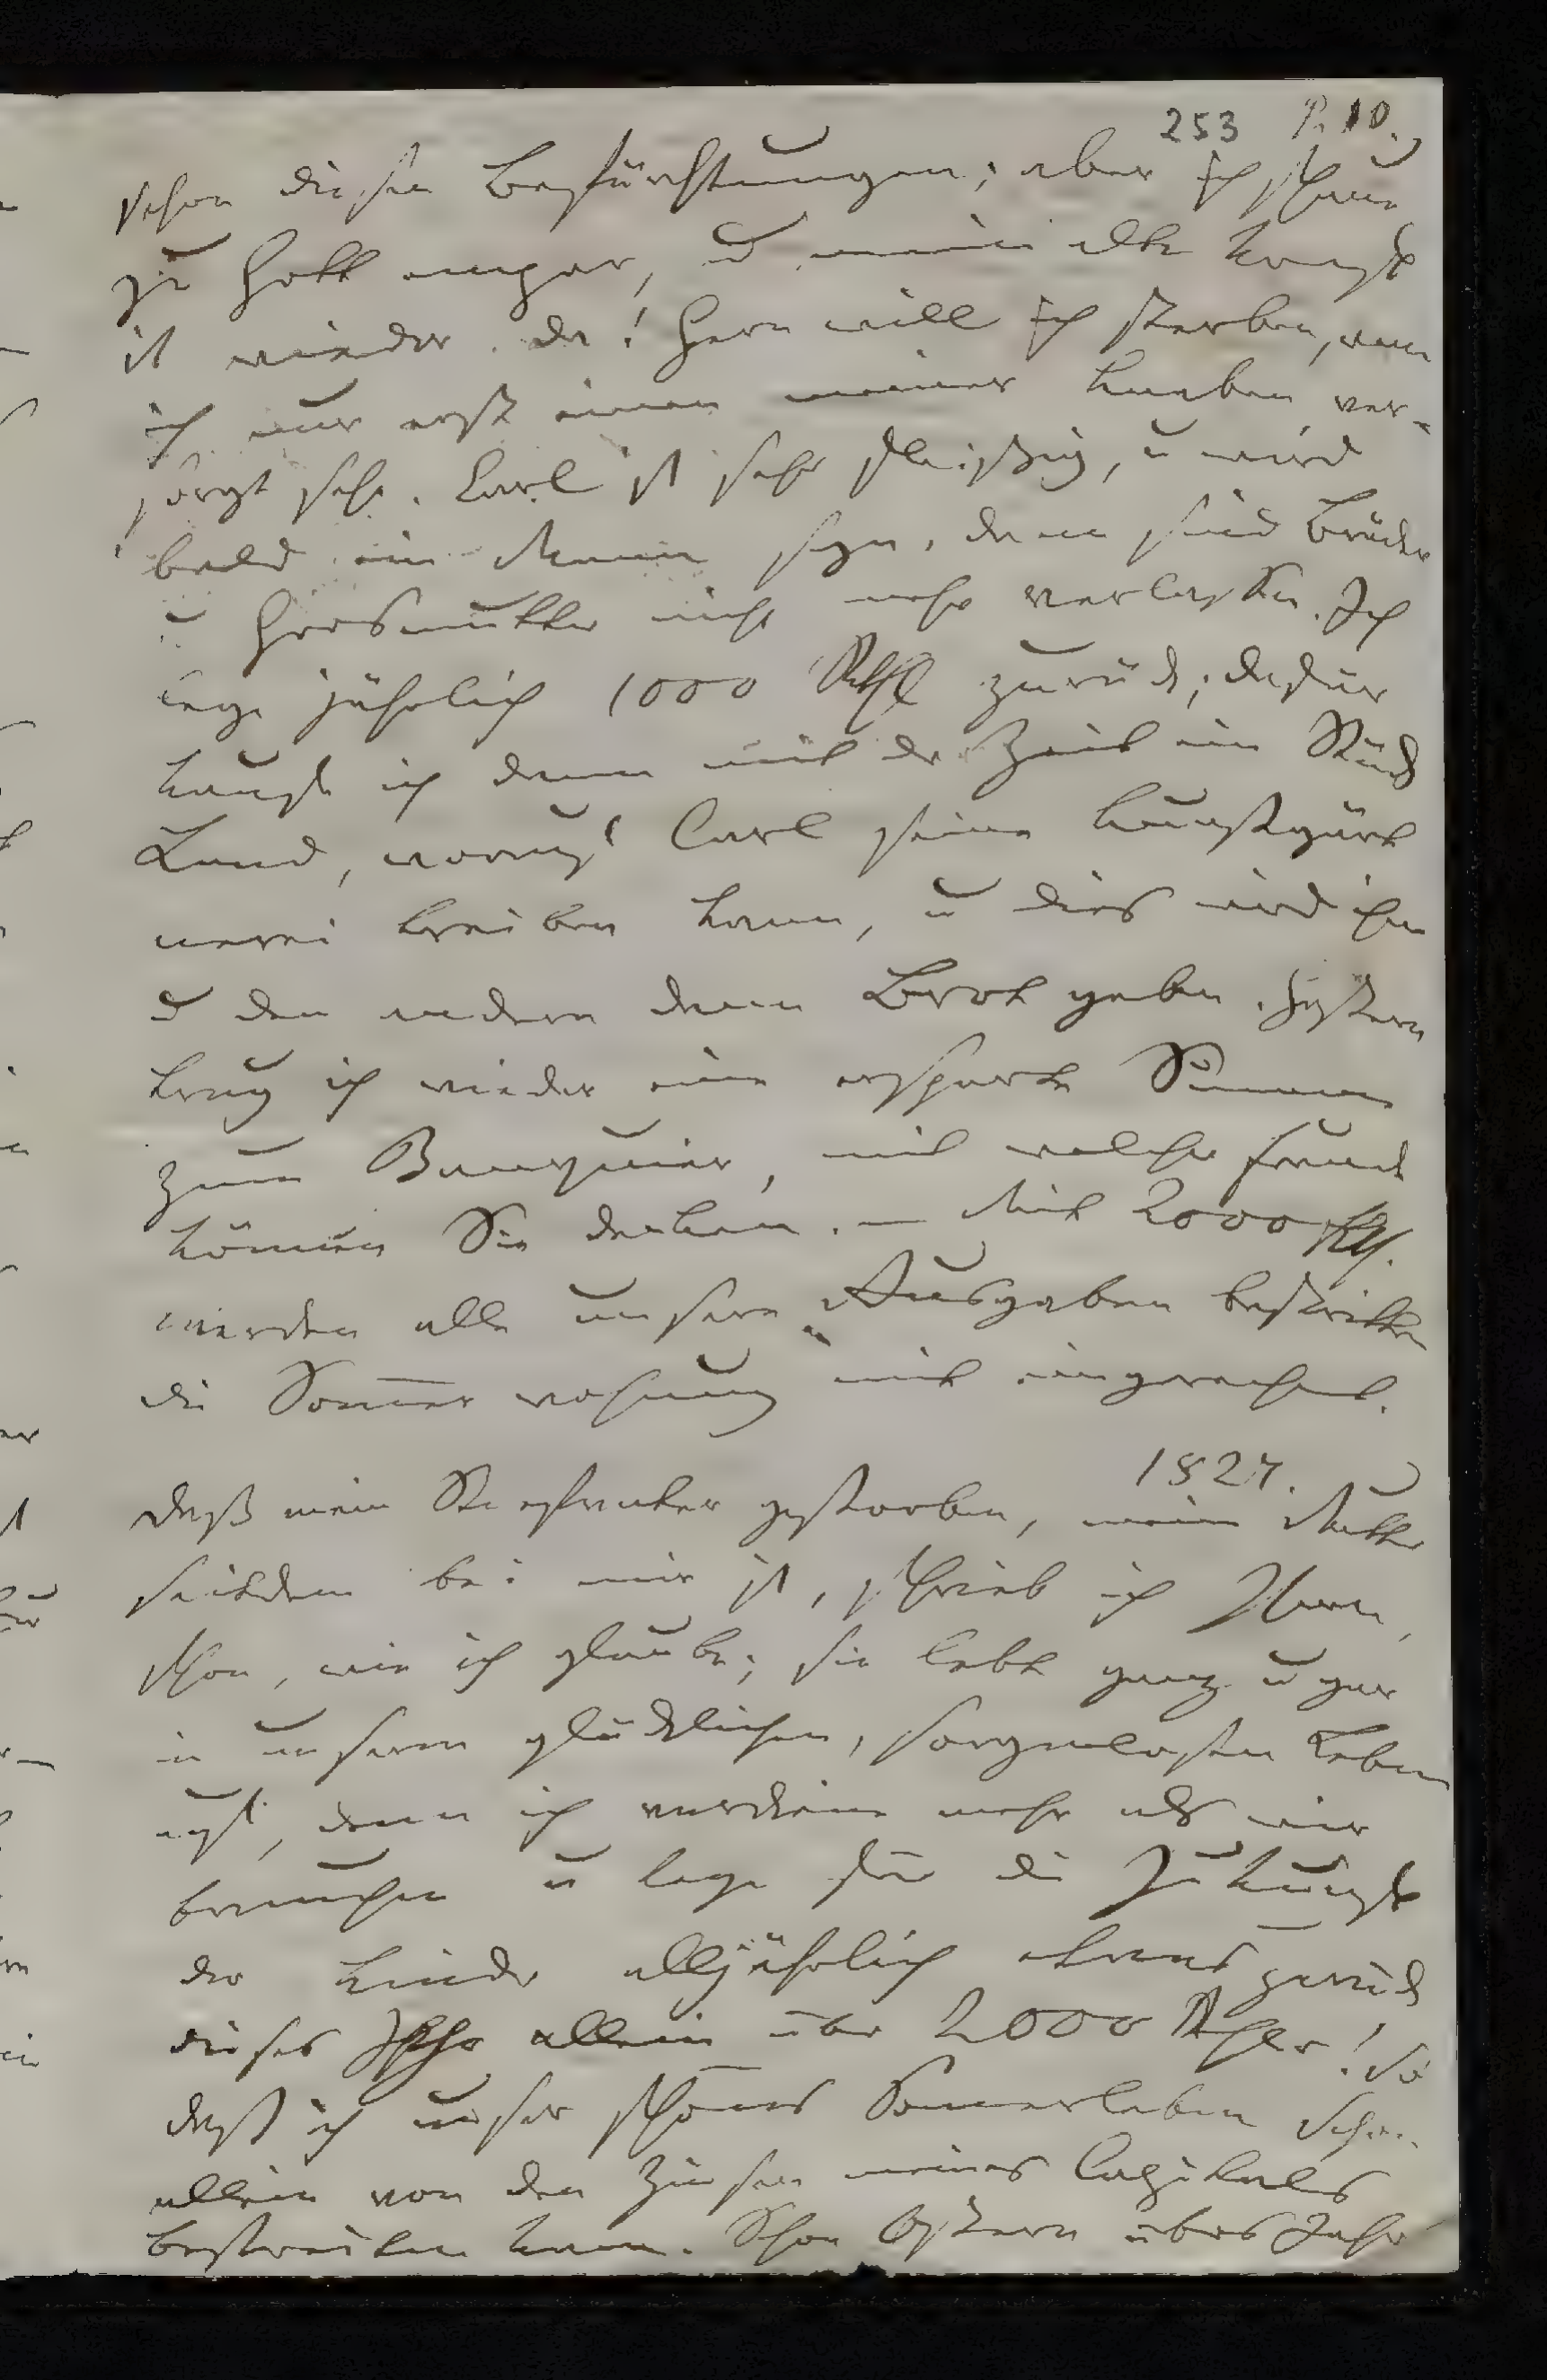 253 P. 10.
schon diese Befürchtungen; aber ich schaue
zu Gott empor, u meine alte Kraft
ist wieder da! Gern will ich sterben, wenn
ich nur erst einen meiner Knaben ver-
sorgt sehe. Carl ist sehr fleißig, u wird
bald ein Mann seyn, dann sind Brüder
u Grosmutter nicht mehr verlassen. Ich
lege jährlich 1000 Rthl zurück; dafür
kaufe ich dann mit der Zeit ein Stück
Land, worauf Carl seine Kunstgärt
nerei treiben kann, u dies wird ihm
u den andern dann Brot geben. Gestern
trug ich wieder eine ersparte Summe
zum Banquier, mit welcher Freude
können Sie denken. — Mit 2000 Rth.
werden alle unsere Ausgaben bestritten
die Sommerwohnung mit eingerechnet.
1827.
Daß mein Stiefvater gestorben, meine Mutter
seitdem bei mir ist, schrieb ich Ihnen
schon, wie ich glaube; sie lebt ganz u gar
in unserm glücklichen, sorgenlosen Leben
auf, denn ich verdiene mehr als wir
brauchen u lege für die Zukunft
der Kinder alljährlich etwas zurück
dieses Jahr allein über 2000 Rthlr! So
daß ich unser schönes Sommerleben schon
allein von den Zinsen meines Capitales
bestreiten kann. Schon Ostern übers Jahr